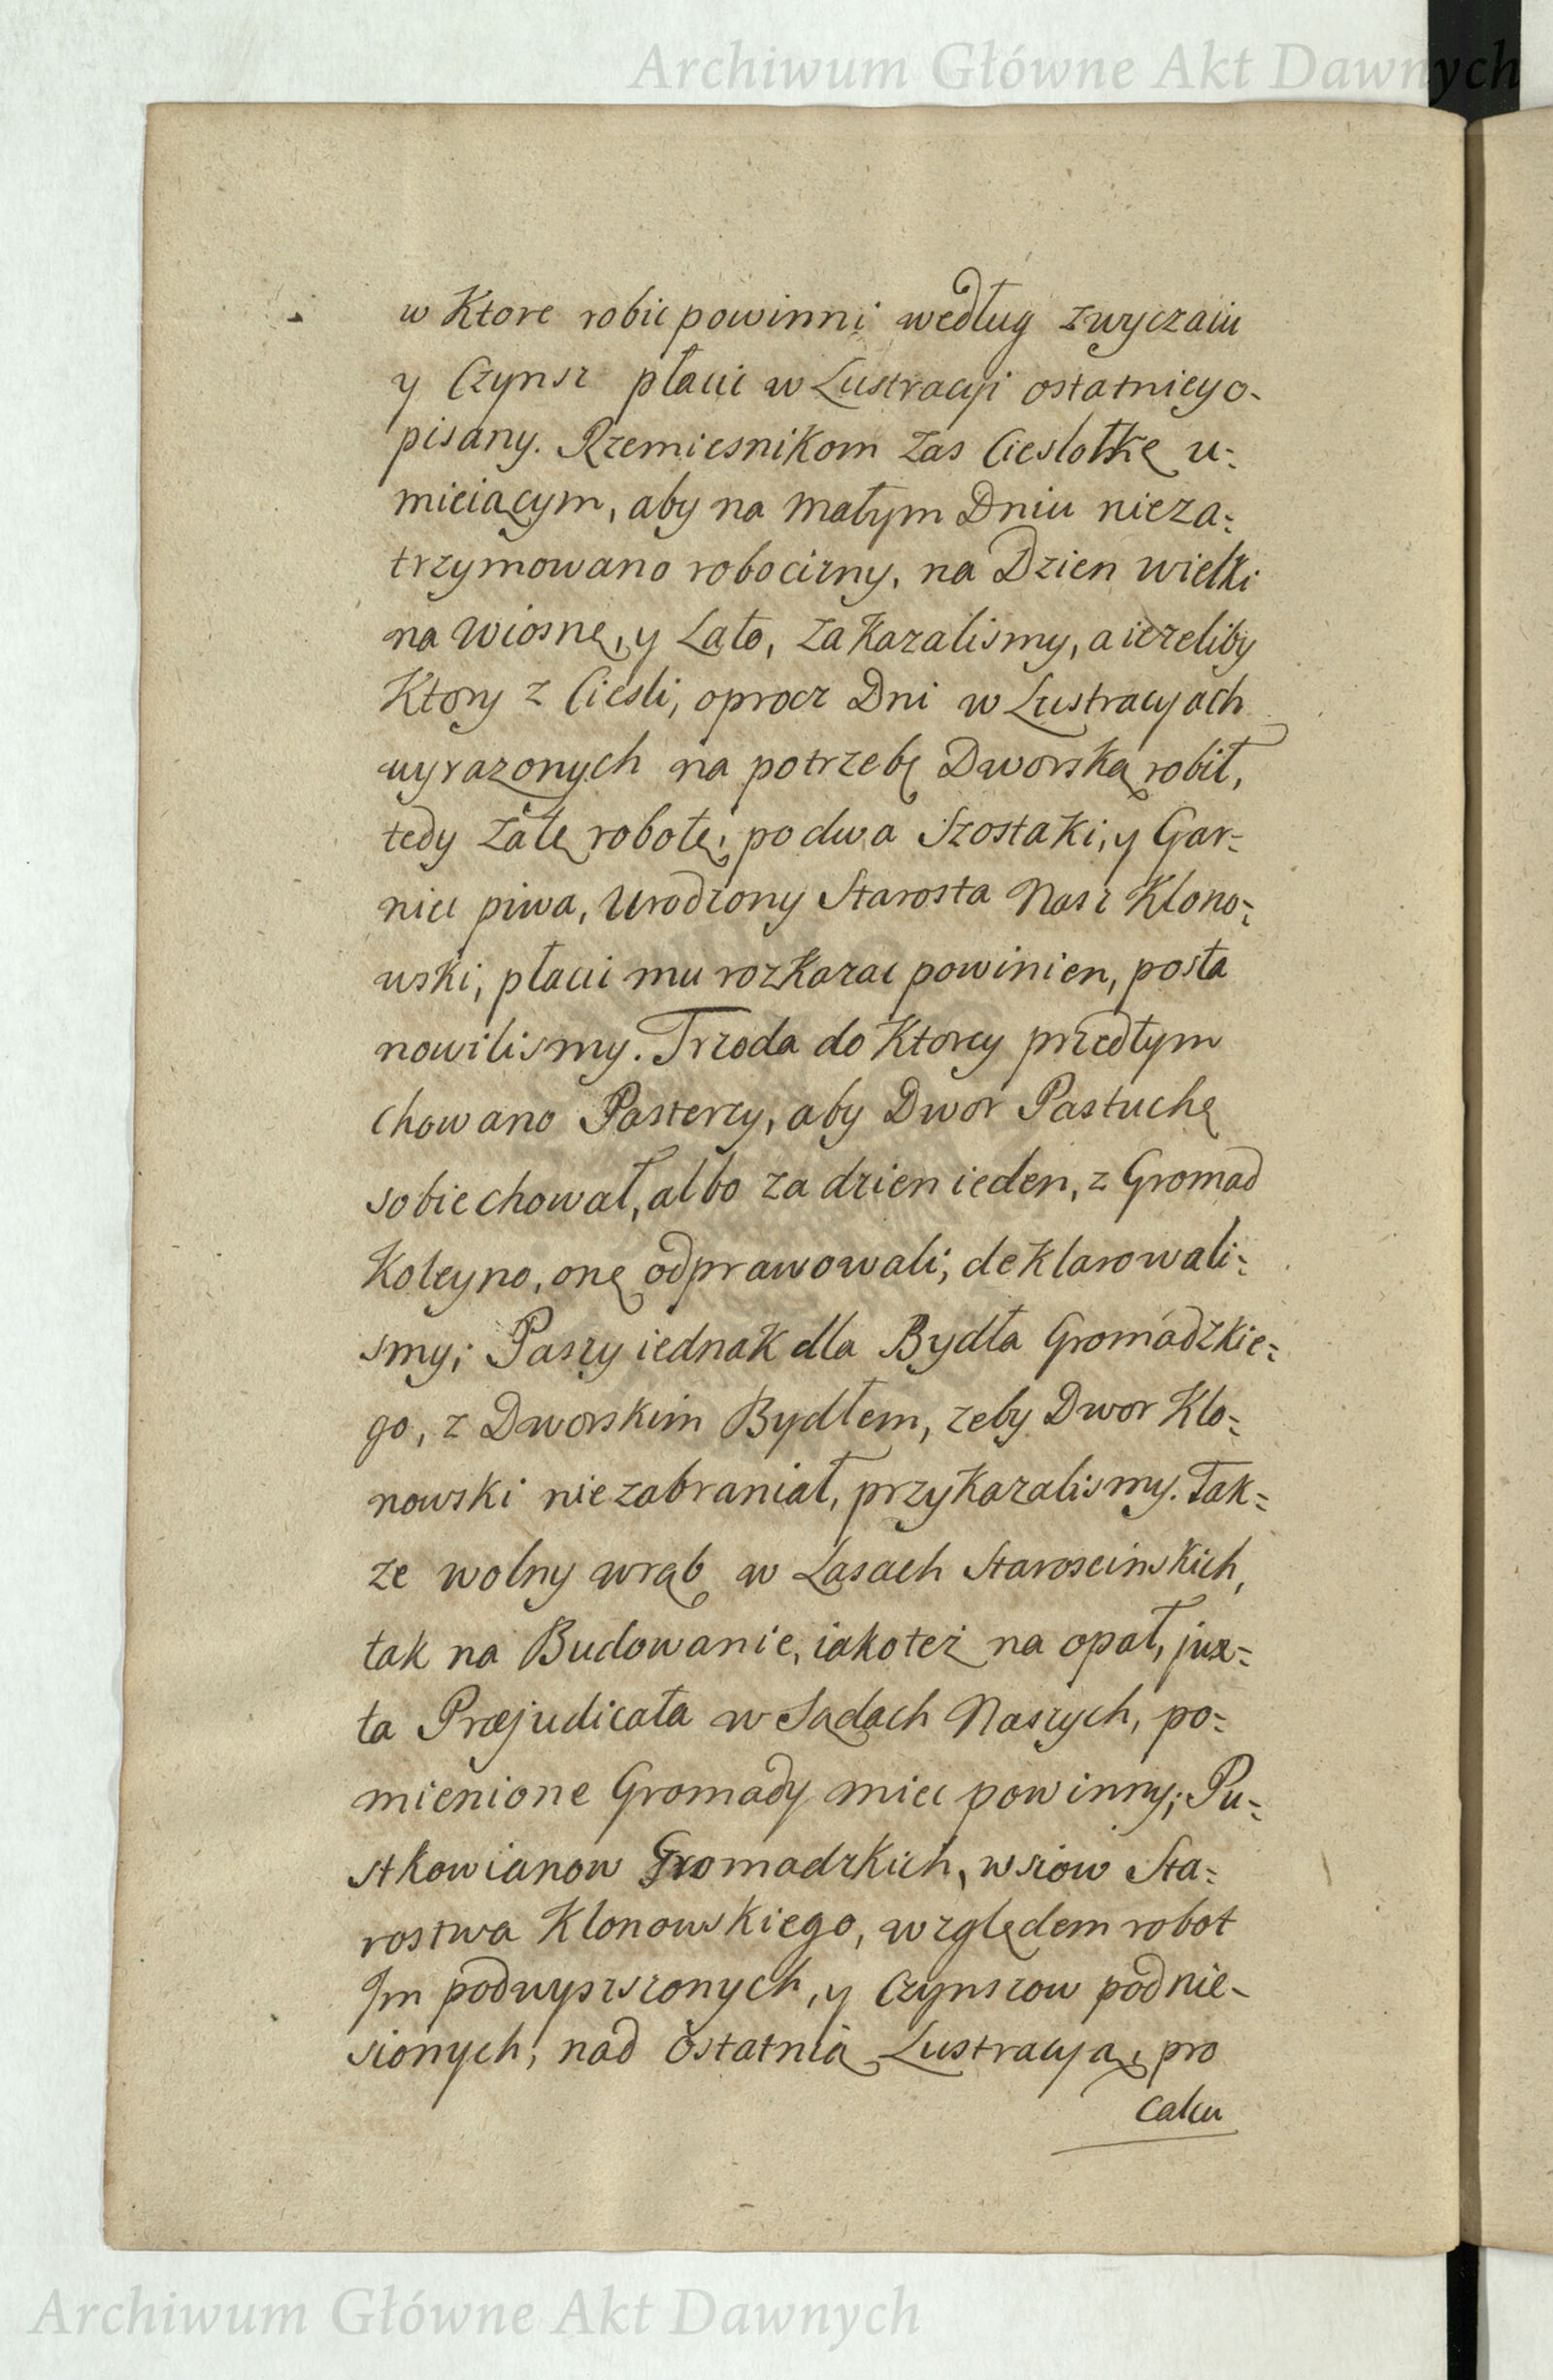 Archiwum Główne Akt Dawnych
w Ktore robic powinni według zwyczaiu
y Czynsz płacic w Lustracyi ostatniey o-
pisany. Rzemiesnikom zas Cieslołkę u-
mieiącym, aby na małym Dniu nieza-
trzymowano robocizny, na Dzien wielki
na Wiosnę, y Lato, zakazalismy, a iezeliby
Ktory z Ciesli, oprocz Dni w Lustracyach
wyrazonych na potrzebę Dworską robił,
tedy zatę robotę, po dwa Szostaki, y Gar-
niec piwa, Urodzony Starosta Nasz Klono-
wski, płacic mu rozkazac powinien, posta
nowilismy. Trzoda do Ktorey przedtym
chowano Pasterzy, aby Dwor Pastuchę
sobie chował, albo za dzien ieden, z Gromad
Koleyno, onę odprawowali, deklarowali-
smy; Paszy iednak dla Bydła Gromadzkie-
go, z Dworskim Bydłem, zeby Dwor Klo-
nowski nie zabraniał, przykazalismy. Tak-
ze wolny wrąb w Lasach Staroscinskich,
tak na Budowanie, iako też na opał, jux-
ta Præjudicata w Sądach Naszych, po-
mienione Gromady miec powinny; Pu-
stkowianow Gromadzkich, wsiow Sta-
rostwa Klonowskiego, względem robot
Im podwyszszonych, y Czynszow podnie-
sionych, nad ostatnią Lustracyą, pro
calcu
Archiwum Główne Akt Dawnych